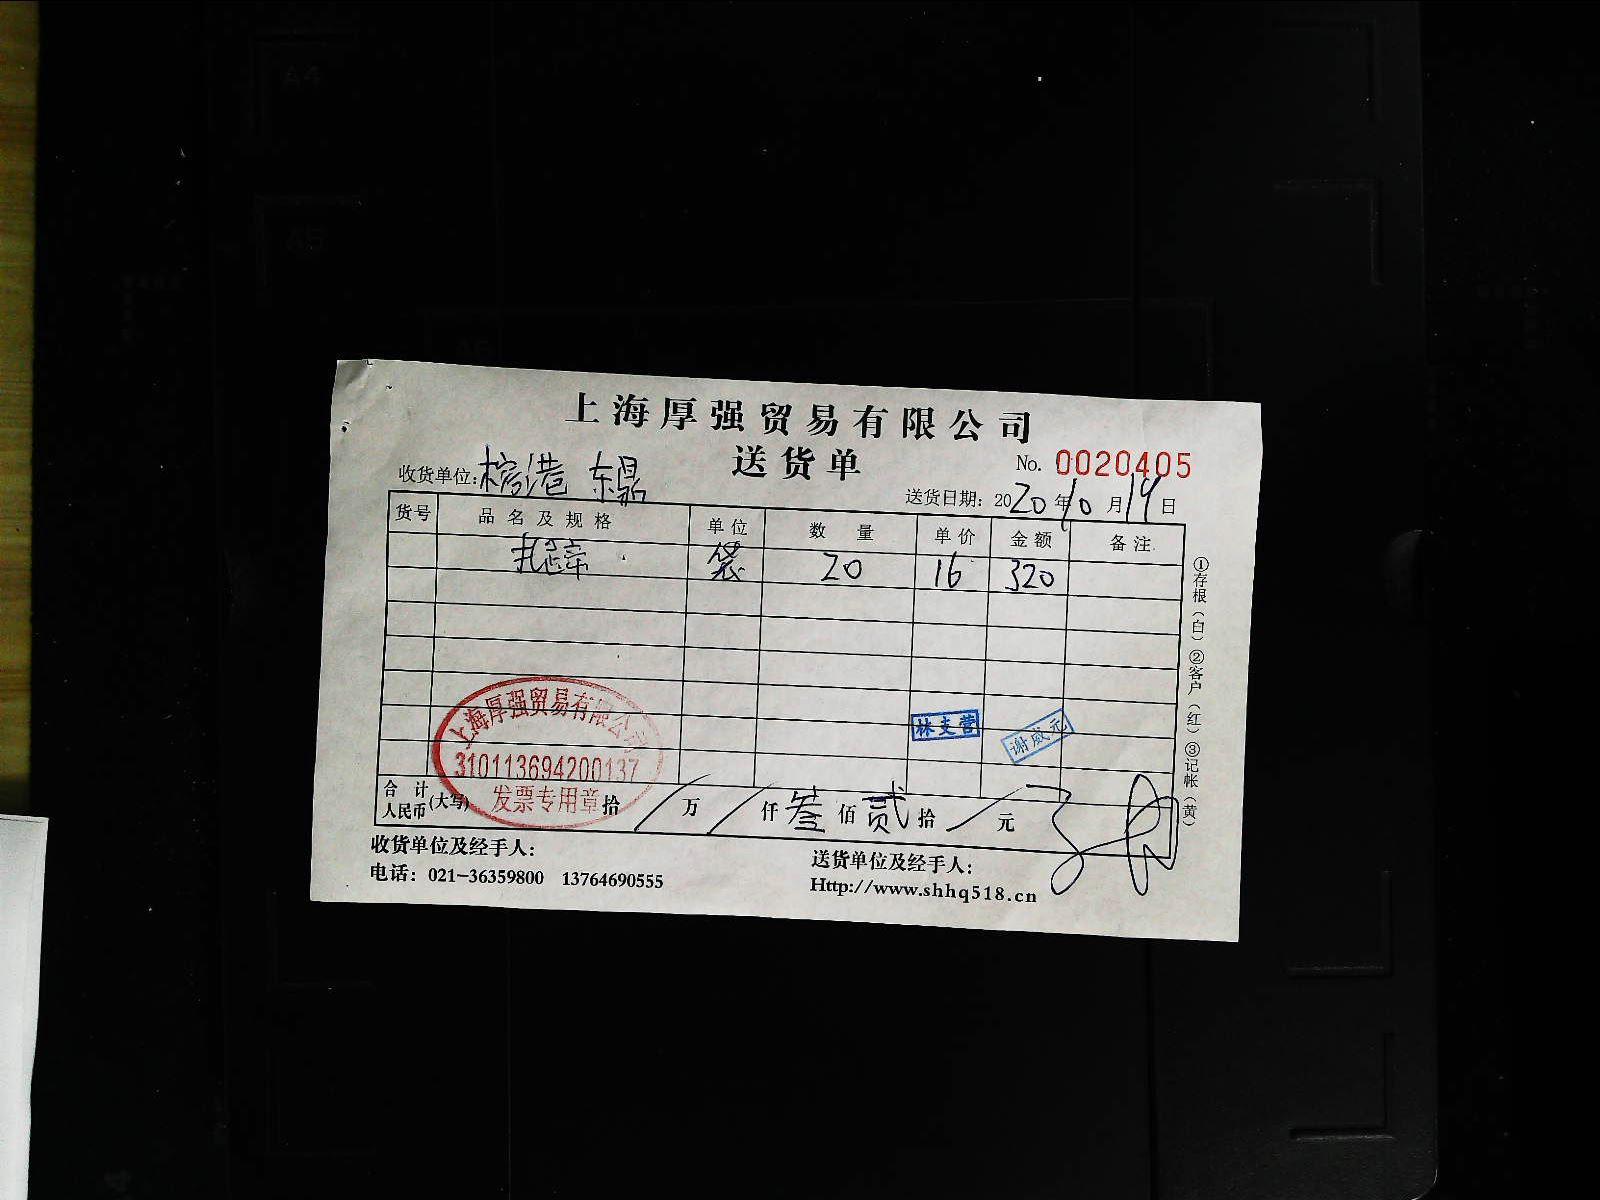 上海厚强贸易有限公司
送货单
No. 0020405
收货单位: 榕港 东鼎
送货日期: 2020年10月19日
货号 品名及规格 单位 数量 单价 金额 备注
袋 20 16 320
林支营 谢威元
上海厚强贸易有限公司
310113694200137
发票专用章
合计人民币(大写) 拾 / 万 / 仟 叁 佰 贰 拾 / 元
收货单位及经手人:
送货单位及经手人:
电话: 021-36359800 13764690555
Http://www.shhq518.cn
①存根(白) ②客户(红) ③记帐(黄)
A4
A5